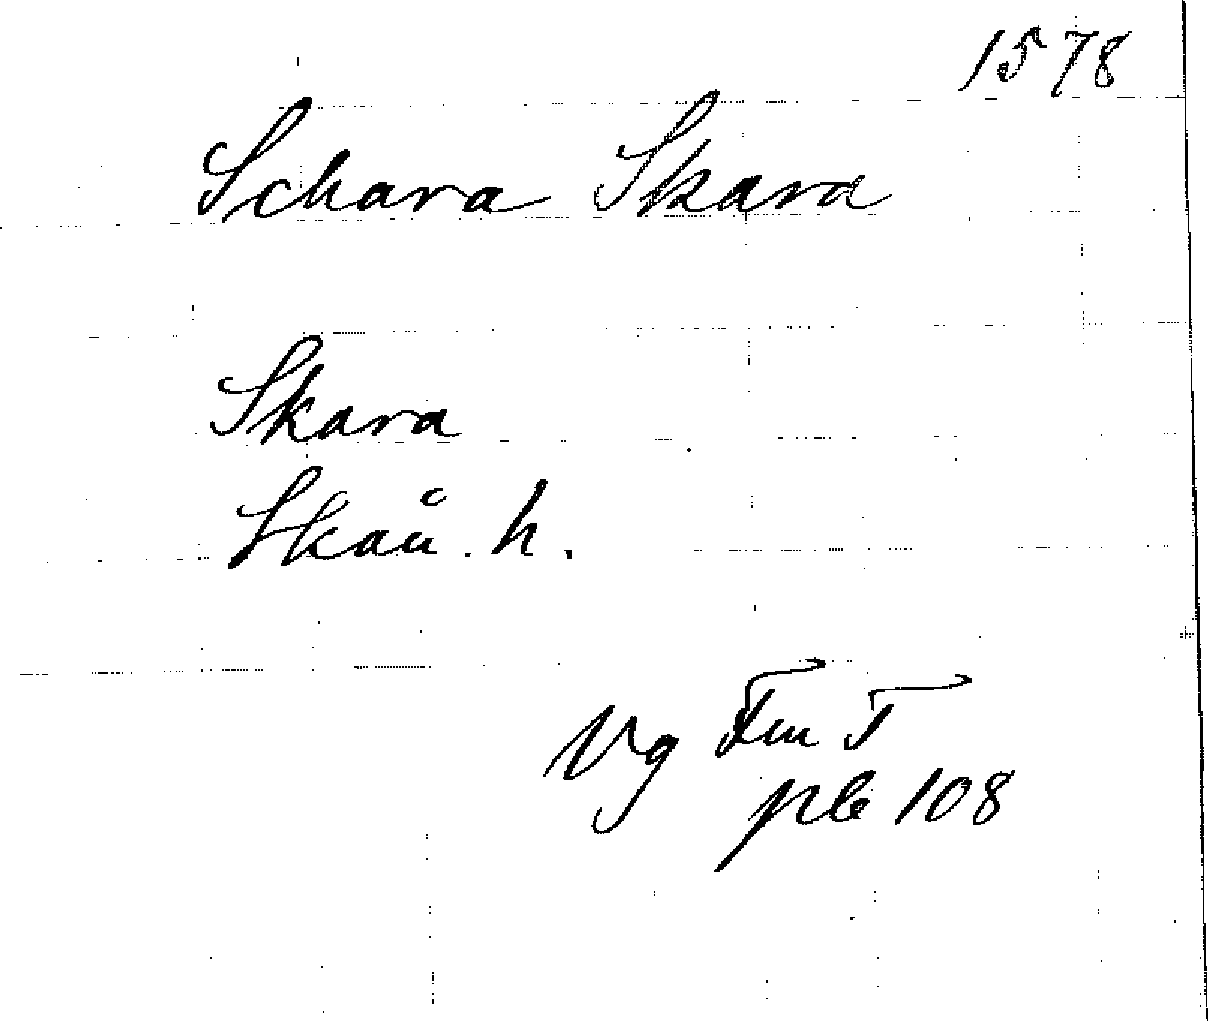 1578
Schara Skara
Skara
Skån. h.
Vg Fm T
plb 108